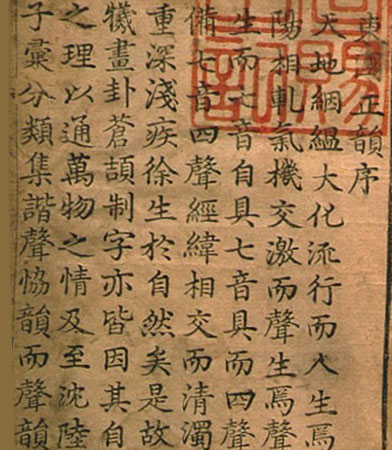 東國正韻序
天地絪縕大化流行而人生焉
陽相軋氣機交激而聲生焉聲
生而七音自具七音具而四聲
備七音四聲經緯相交而清濁
重深淺疾徐生於自然矣是故
犧畫卦蒼頡制字亦皆因其自
之理以通萬物之情及至沈陸
子彙分類集諧聲恊韻而聲韻